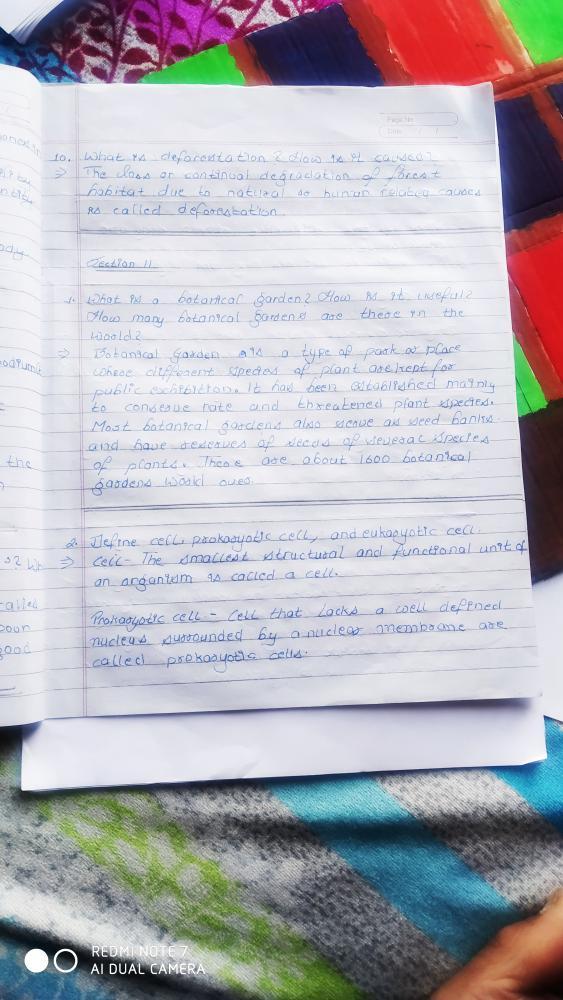 Page No
Date / /
10. What is deforestation? How is it caused?
⇒ The loss or continual degradation of forest
habitat due to natural or human related causes
is called deforestation.
Section 11
1. What is a botanical garden? How is it useful?
How many botanical gardens are there in the
World?
⇒ Botanical garden is a type of park or place
where different species of plant are kept for
public exhibition. It has been established mainly
to conserve rare and threatened plant species.
Most botanical gardens also serve as seed banks
and have reserves of seeds of several species
of plants. There are about 1600 botanical
gardens World over.
2. Define cell, prokaryotic cell, and eukaryotic cell.
⇒ Cell - The smallest structural and functional unit of
an organism is called a cell.
Prokaryotic cell - Cell that lacks a well defined
nucleus surrounded by a nuclear membrane are
called prokaryotic cells.
the
called
good
REDMI NOTE 7
AI DUAL CAMERA